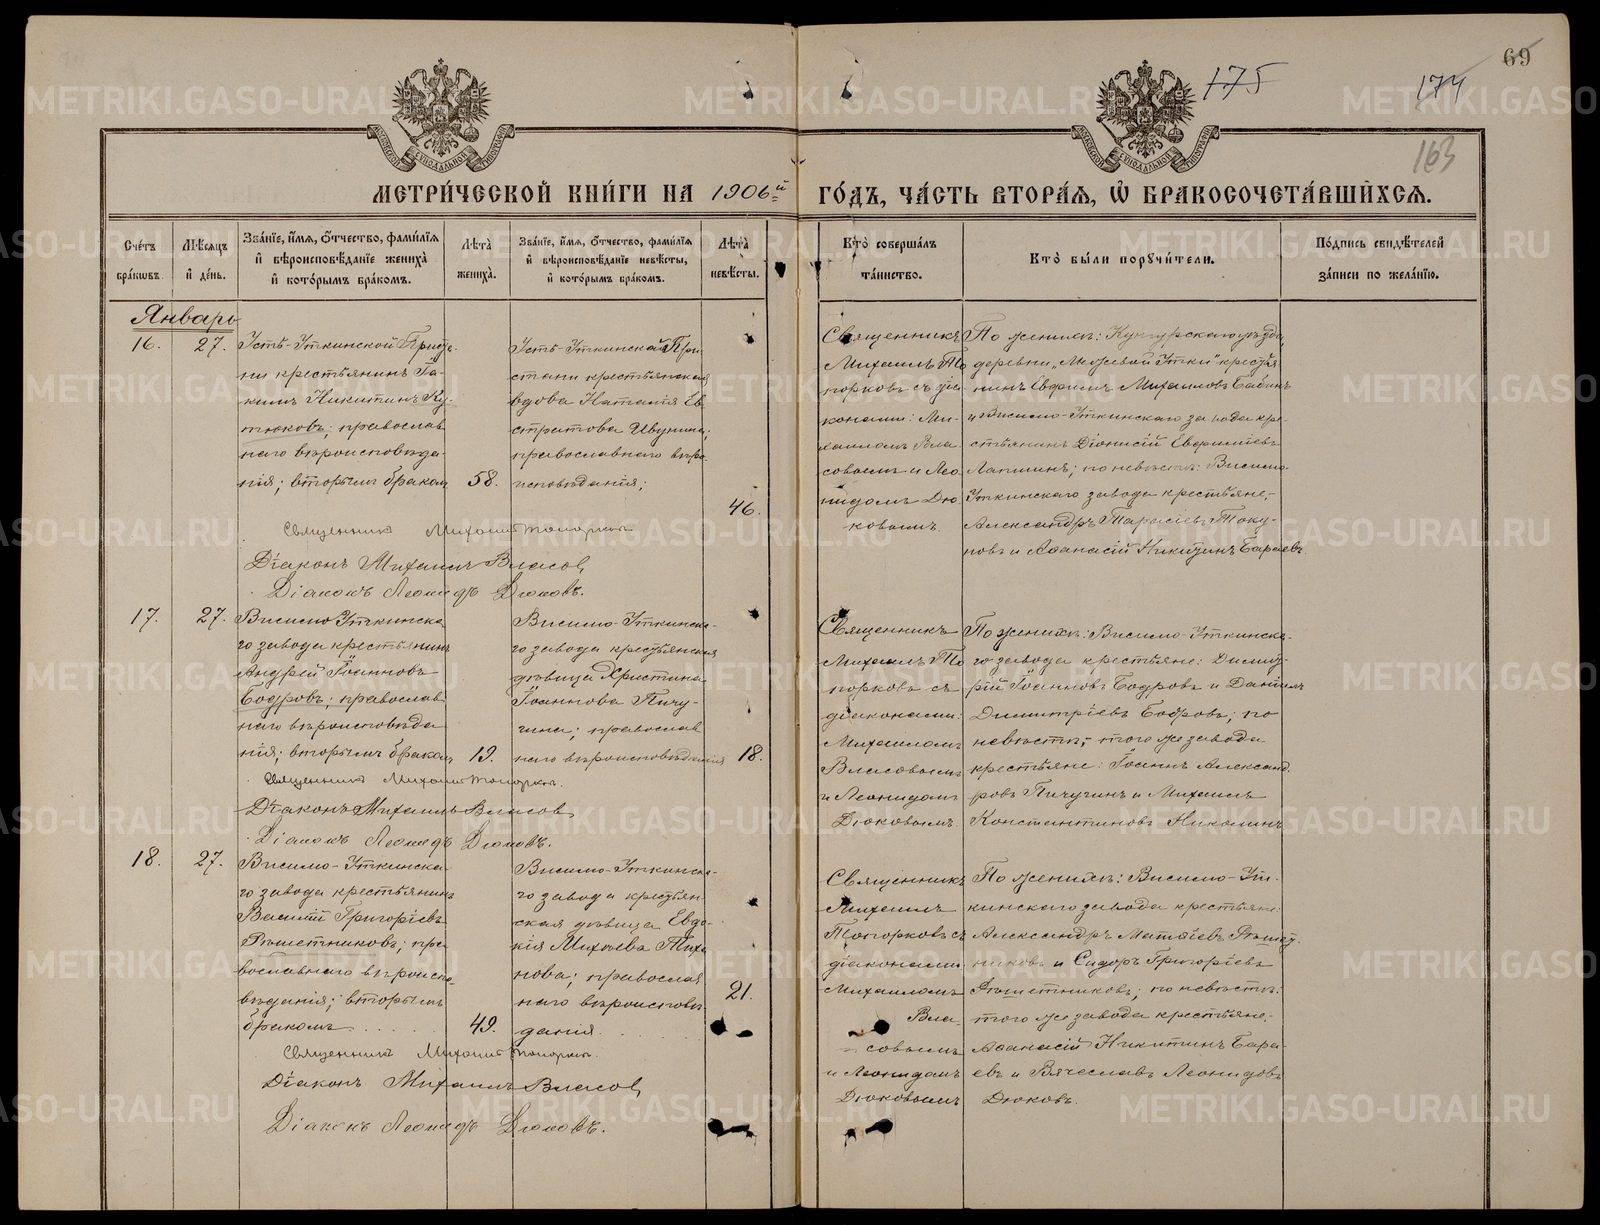 69
175
174
163
МОСКОВСКОЙ СѴНОДАЛЬНОЙ ТИПОГРАФІИ
МОСКОВСКОЙ СѴНОДАЛЬНОЙ ТИПОГРАФІИ
МЕТРИ́ЧЕСКОЙ КНИ́ГИ НА 1906й ГО́ДЪ, ЧА́СТЬ ВТОРА́Я, Ѽ БРАКОСОЧЕТА́ВШИХСЯ.
Сче́тъ
бра́ковъ.
Мѣ́сяцъ
и҆ де́нь.
Зва́нїе, и҆́мя, ѻ҆́тчество, фами́лїя
и҆ вѣроисповѣ́данїе жениха̀
и҆ кото́рымъ бра́комъ.
Лѣ́та̀
жениха̀.
Зва́нїе, и҆́мя, ѻ҆́тчество, фами́лїя
и҆ вѣроисповѣ́данїе невѣ́сты,
и҆ кото́рымъ бра́комъ.
Лѣ́та̀
невѣ́сты.
Кто̀ соверша́лъ
та́инство.
Кто̀ бы́ли поручи́тели.
По́дпись свидѣ́телей
за́писи по жела́нїю.
Январь
16.
27.
Усть-Уткинской Приста-
ни крестьянинъ Іа-
кимъ Никитинъ Ку-
тюковъ; православ
наго вѣроисповѣда-
нія; вторымъ бракомъ
58.
Усть-Уткинской При
стани крестьянская
вдова Наталія Ев
стратова Ивунина;
православнаго вѣро-
исповѣданія;
46.
Священникъ
Михаилъ То
порковъ съ діа
конами: Ми-
хаиломъ Вла
совымъ и Лео
нидомъ Дю
ковымъ.
По женихѣ: Кунгурскаго уѣзда,
деревни „Межевой Утки" крестья
нинъ Ефримъ Михаиловъ Бабинъ
и Висимо-Уткинскаго завода кре-
стьянинъ Діонисій Евфиміевъ
Лапшинъ; по невѣстѣ: Висимо-
Уткинскаго завода крестьяне,-
Александръ Тарасіевъ Току-
новъ и Аѳанасій Никитинъ Бараевъ.
Священникъ Михаилъ Топорковъ
Діаконъ Михаилъ Власовъ
Діаконъ Леонидъ Дюковъ.
17.
27.
Висимо Уткинска
го завода крестьянинъ
Андрей Іоанновъ
Бодровъ; православ
наго вѣроисповѣда
нія; вторымъ бракомъ
19.
Висимо-Уткинска-
го завода крестьянская
дѣвица Христина
Іоаннова Пичу-
гина; православ
наго вѣроисповѣданія
18.
Священникъ
Михаилъ То
порковъ съ
діаконами:
Михаиломъ
Власовымъ
и Леонидомъ
Дюковымъ.
По женихѣ: Висимо-Уткинска-
го завода крестьяне: Димит-
рій Іоанновъ Бодровъ и Даніилъ
Димитріевъ Бодровъ; по
невѣстѣ;- того же завода
крестьяне: Іоаннъ Александ-
ровъ Пичугинъ и Михаилъ
Константиновъ Николинъ
Священникъ Михаилъ Топорковъ.
Діаконъ Михаилъ Власовъ
Діаконъ Леонидъ Дюковъ.
18.
27.
Висимо-Уткинска
го завода крестьянинъ
Василій Григоріевъ
Рѣшетниковъ; пра
вославнаго вѣроиспо-
вѣданія; вторымъ
бракомъ
49.
Висимо-Уткинска-
го завода крестьян-
ская дѣвица Евдо-
кія Михеева Тихо
нова; православ
наго вѣроисповѣ
данія.
21.
Священникъ
Михаилъ
Топорковъ съ
діаконами
Михаиломъ
Вла-
совымъ
и Леонидомъ
Дюковымъ
По женихѣ: Висимо-Ут-
кинскаго завода крестьяне:
Александръ Матѳіевъ Рѣшет-
никовъ и Сидоръ Григоріевъ
Рѣшетниковъ; по невѣстѣ:
того же завода крестьяне,-
Аѳанасій Никитинъ Бара-
евъ и Вячеславъ Леонидовъ
Дюковъ.
Священникъ Михаилъ Топорковъ.
Діаконъ Михаилъ Власовъ
Діаконъ Леонидъ Дюковъ.
METRIKI.GASO-URAL.RU